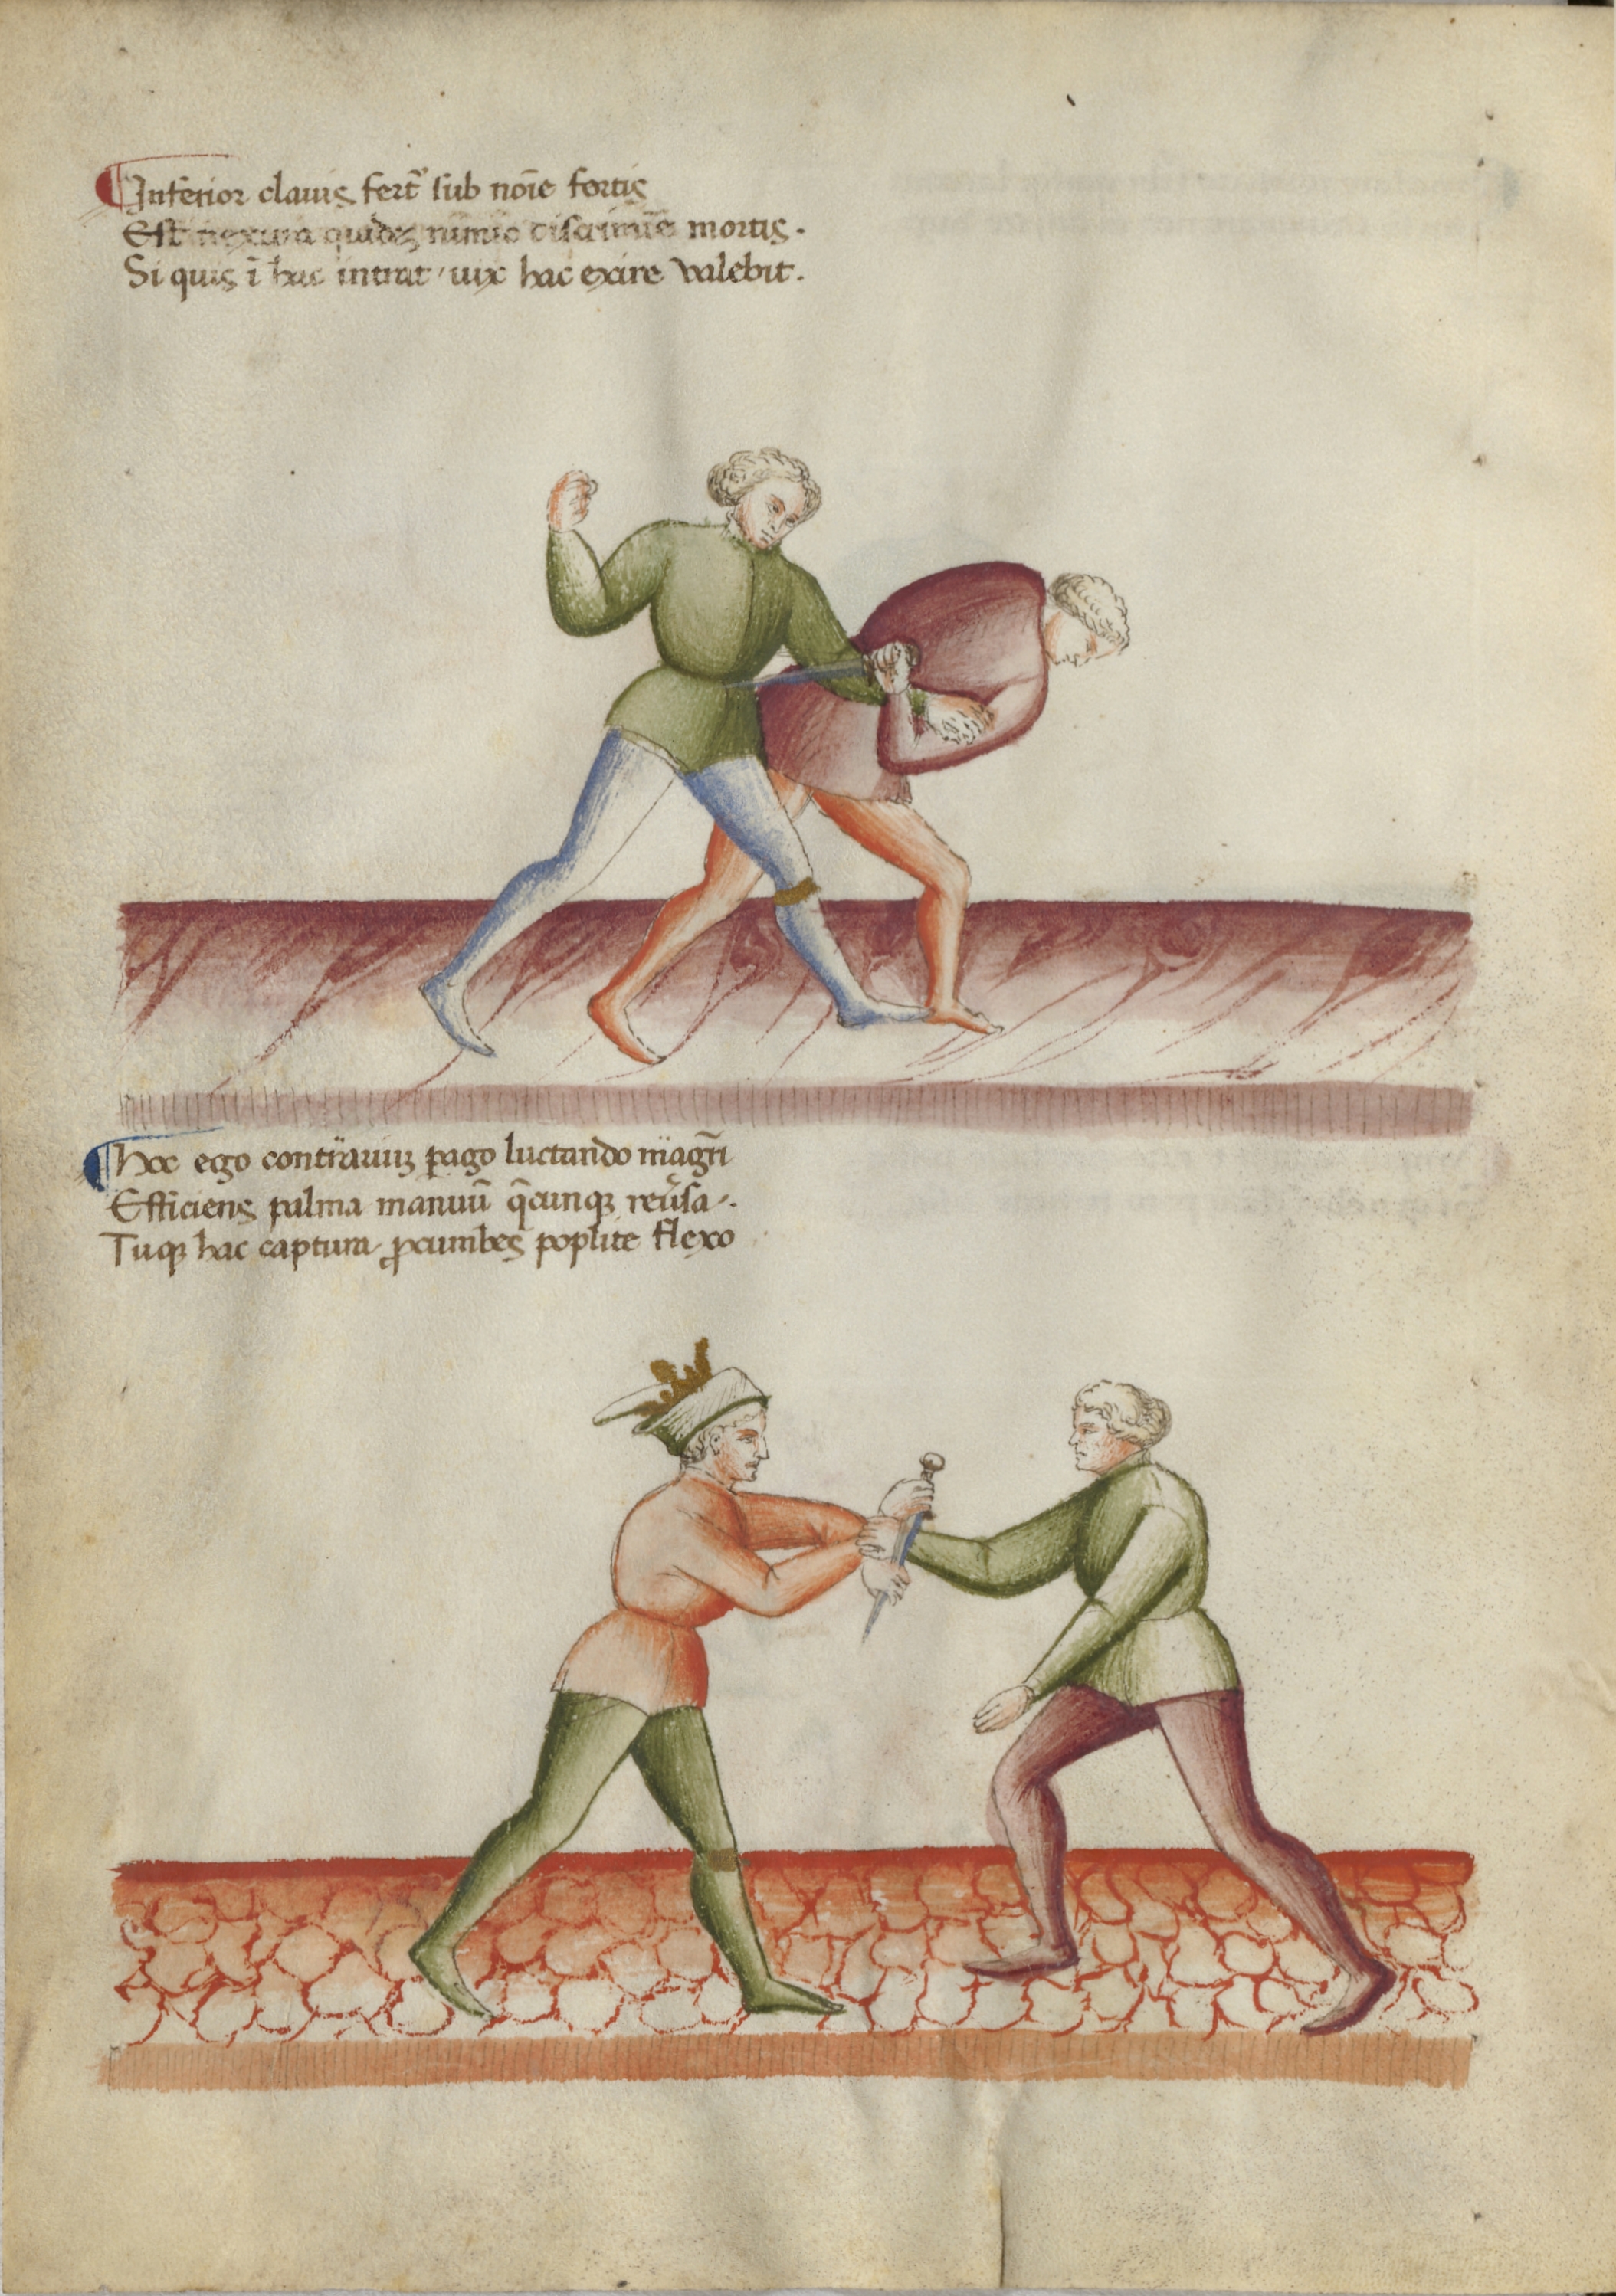 ¶Inferior clauis fert᷑ sub noīe fortis
Est quideꝫ nimio mortis.
Si quis ī hac intrat / uix hac exire valebit.
¶hoc ego contrariuꝫ ꝑago luctando magr̄i
Efficiens palma manuū q̄cunqꝫ reu͛sa.
Tuqꝫ hac captura ꝓcumbes poplite flexo